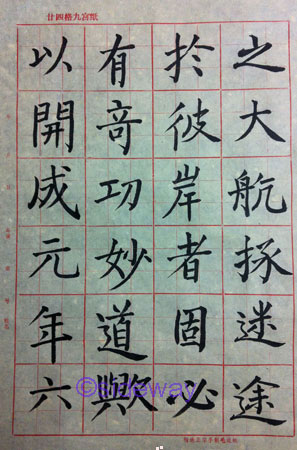 廿四格九宮紙
之大航拯迷途
於彼岸者固必
有竒功妙道歟
以開成元年六
©sideway